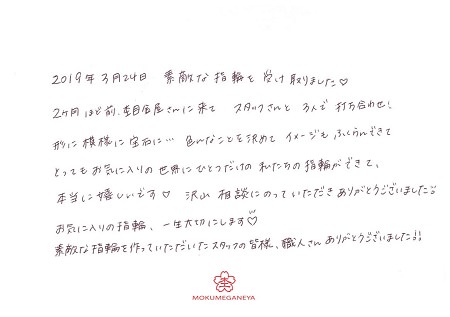 2019年3月24日 素敵な指輪を受け取りました♡
2ヶ月ほど前、杢目金屋さんに来て スタッフさんと 3人で 打ち合わせ！
形に 模様に 宝石に… 色んなことを決めて イメージもふくらんできて
とってもお気に入りの 世界にひとつだけの 私たちの 指輪ができて、
本当に嬉しいです♡ 沢山 相談にのっていただき ありがとうございました!!
お気に入りの指輪、一生大切にします♡
素敵な指輪を作っていただいたスタッフの皆様、職人さん ありがとうございました!!
杢
MOKUMEGANEYA